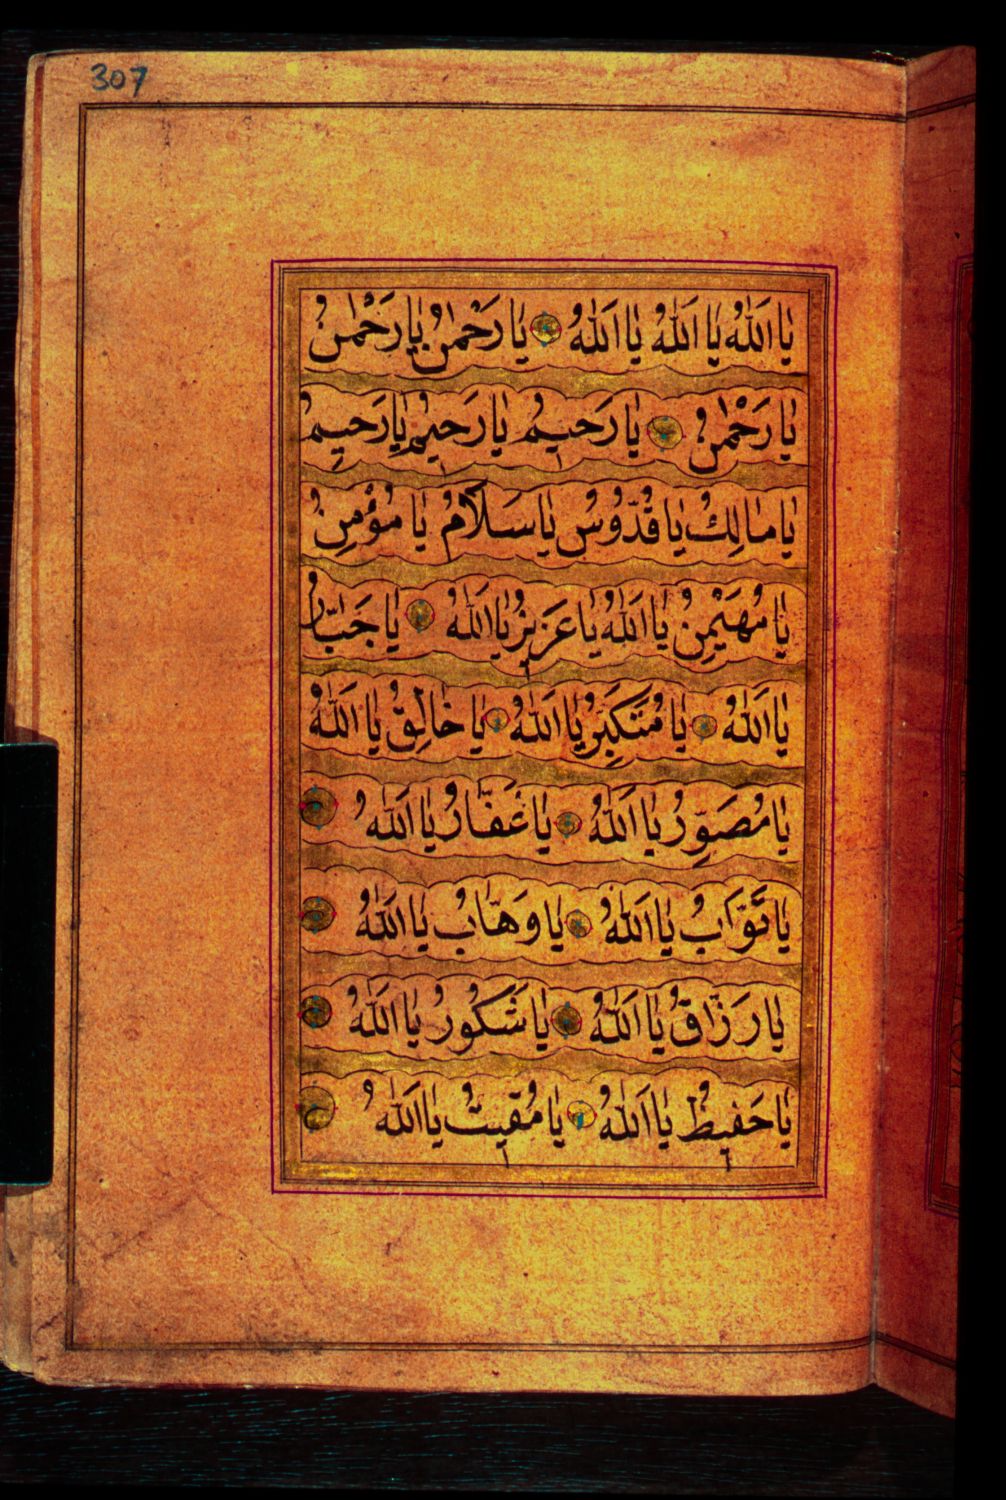 307
يٰا اَللّٰهُ يٰا اَللّٰهُ يٰا اَللّٰهُ يٰا رَحْمٰنُ يٰا رَحْمٰنُ
يٰا رَحْمٰنُ يٰا رَحيمُ يٰا رَحيمُ يٰا رَحيمُ
يٰا مٰالِكُ يٰا قُدّوُسُ يٰا سَلٰامُ يٰا مُؤْمِنُ
يٰا مُهَيْمِنُ يٰا اَللّٰهُ يٰا عَزيزُ يٰا اَللّٰهُ يٰا جَبّٰارُ
يٰا اَللّٰهُ يٰا مُتَكَبِّرُ يٰا اَللّٰهُ يٰا خٰالِقُ يٰا اَللّٰهُ
يٰا مُصَوِّرُ يٰا اَللّٰهُ يٰا غَفّٰارُ يٰا اَللّٰهُ
يٰا تَوّٰابُ يٰا اَللّٰهُ يٰا وَهّٰابُ يٰا اَللّٰهُ
يٰا رَزّٰاقُ يٰا اَللّٰهُ يٰا شَكُورُ يٰا اَللّٰهُ
يٰا حَفيظُ يٰا اَللّٰهُ يٰا مُقيتُ يٰا اَللّٰهُ